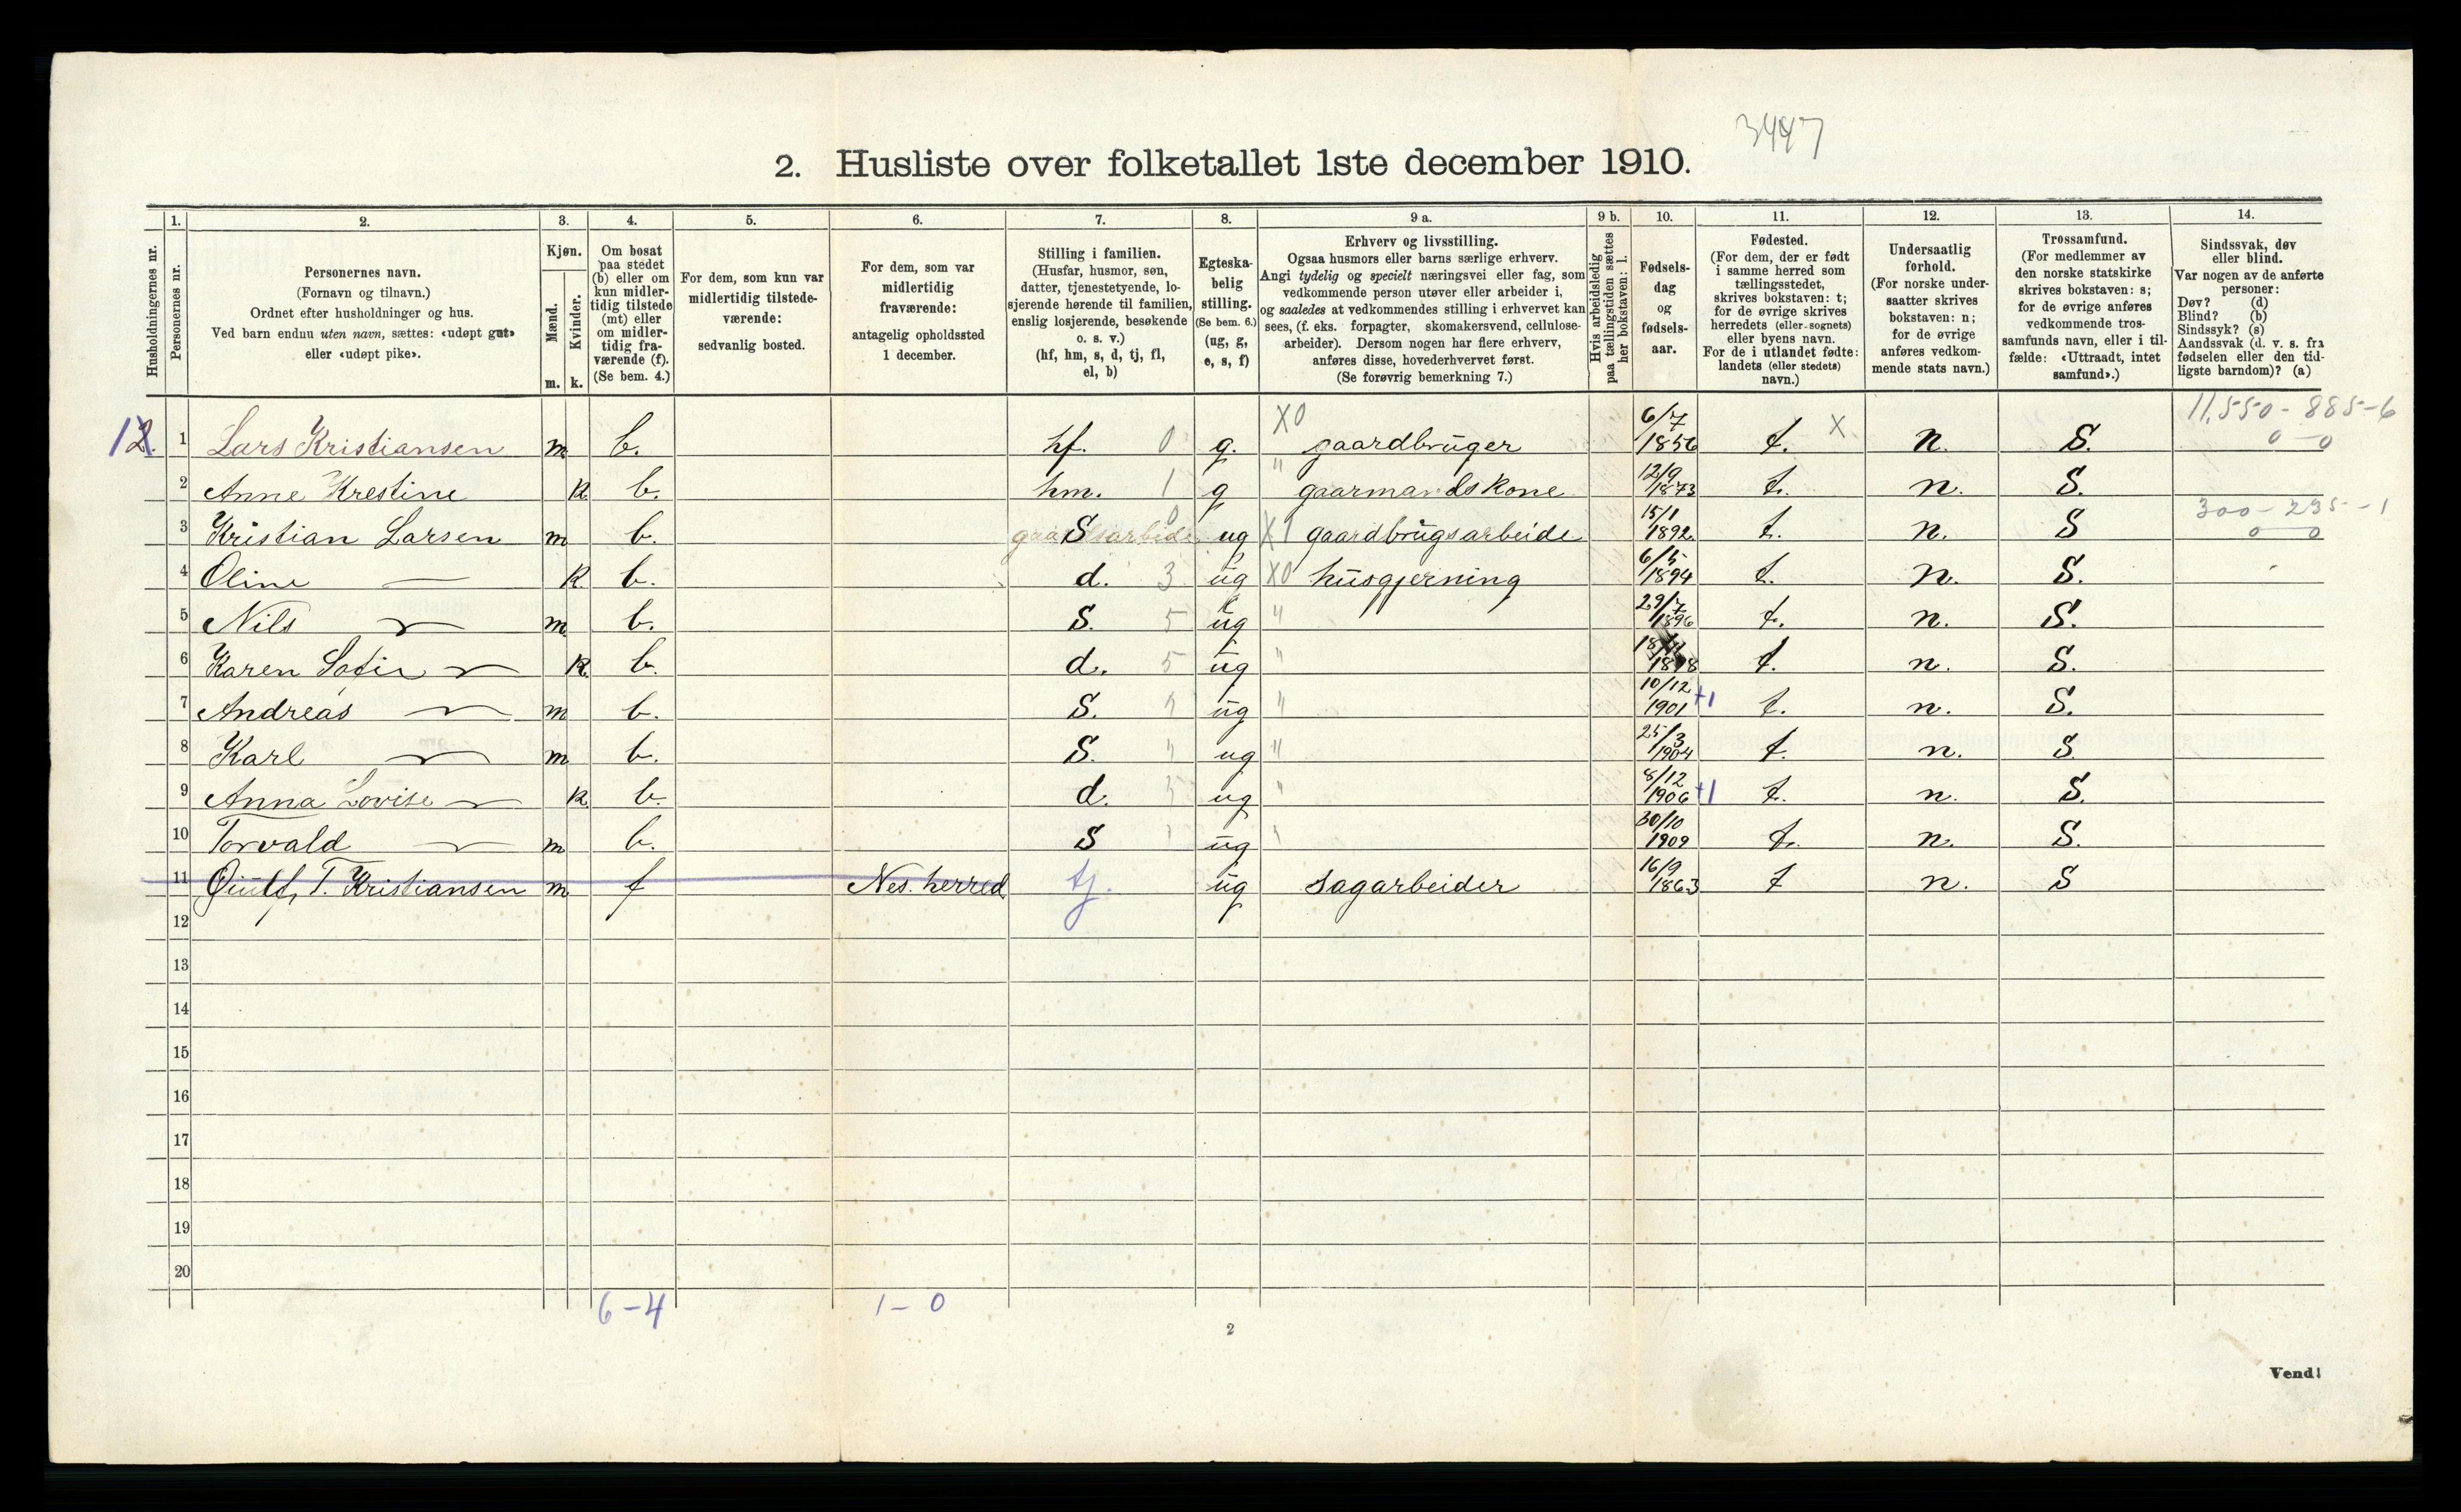 3447
2. Husliste over folketallet 1ste december 1910.
Husholdningernes nr.
1. Personernes nr.
2. Personernes navn.
(Fornavn og tilnavn.)
Ordnet efter husholdninger og hus.
Ved barn endnu uten navn, sættes: «udøpt gut»
eller «udøpt pike».
3. Kjøn.
Mænd. m.
Kvinder. k.
4. Om bosat
paa stedet
(b) eller om
kun midler-
tidig tilstede
(mt) eller
om midler-
tidig fra-
værende (f).
(Se bem. 4.)
5. For dem, som kun var
midlertidig tilstede-
værende:
sedvanlig bosted.
6. For dem, som var
midlertidig
fraværende:
antagelig opholdssted
1 december.
7. Stilling i familien.
(Husfar, husmor, søn,
datter, tjenestetyende, lo-
sjerende hørende til familien,
enslig losjerende, besøkende
o. s. v.)
(hf, hm, s, d, tj, fl,
el, b)
8. Egteska-
belig
stilling.
(Se bem. 6.)
(ug, g,
e, s, f)
9 a. Erhverv og livsstilling.
Ogsaa husmors eller barns særlige erhverv.
Angi tydelig og specielt næringsvei eller fag, som
vedkommende person utøver eller arbeider i,
og saaledes at vedkommendes stilling i erhvervet kan
sees, (f. eks. forpagter, skomakersvend, cellulose-
arbeider). Dersom nogen har flere erhverv,
anføres disse, hovederhvervet først.
(Se forøvrig bemerkning 7.)
9 b. Hvis arbeidsledig
paa tællingstiden sættes
her bokstaven: l.
10. Fødsels-
dag
og
fødsels-
aar.
11. Fødested.
(For dem, der er født
i samme herred som
tællingsstedet,
skrives bokstaven: t;
for de øvrige skrives
herredets (eller sognets)
eller byens navn.
For de i utlandet fødte:
landets (eller stedets)
navn.)
12. Undersaatlig
forhold.
(For norske under-
saatter skrives
bokstaven: n;
for de øvrige
anføres vedkom-
mende stats navn.)
13. Trossamfund.
(For medlemmer av
den norske statskirke
skrives bokstaven: s;
for de øvrige anføres
vedkommende tros-
samfunds navn, eller i til-
fælde: «Uttraadt, intet
samfund».)
14. Sindssvak, døv
eller blind.
Var nogen av de anførte
personer:
Døv? (d)
Blind? (b)
Sindssyk? (s)
Aandssvak (d. v. s. fra
fødselen eller den tid-
ligste barndom)? (a)
1 Lars Kristiansen m b. hf. 0 g. X0 gaardbruger 6/7 1856 t. X n. S. 11,550 - 885 - 6 0 - 0
2 Anne Krestine k b. hm. 1 g " gaarmandskone 12/9 1873 t. n. S.
3 Kristian Larsen m b. S 0 ug X1 gaardbrugsarbeide 15/1 1892 t. n. S 300 - 235 - 1 0 - 0
4 Oline — k b. d. 3 ug X0 husgjerning 6/5 1894 t. n. S.
5 Nils — m b. S. 5 ug " 29/7 1896 t. n. S.
6 Karen Sofie — k b. d. 5 ug " 1898 t. n. S.
7 Andreas — m b. S. ug " 10/12 1901 +1 t. n. S.
8 Karl — m b. S. ug " 25/3 1904 t. n. S.
9 Anna Lovise — k b. d. ug " 8/12 1906 +1 t. n. S.
10 Torvald — m b. S ug " 30/10 1909 t. n. S.
11 T. Kristiansen m f Nes. herred tj. ug sagarbeider 16/9 1863 t n. S
12
13
14
15
16
17
18
19
20
6 - 4 1 - 0
2
Vend!